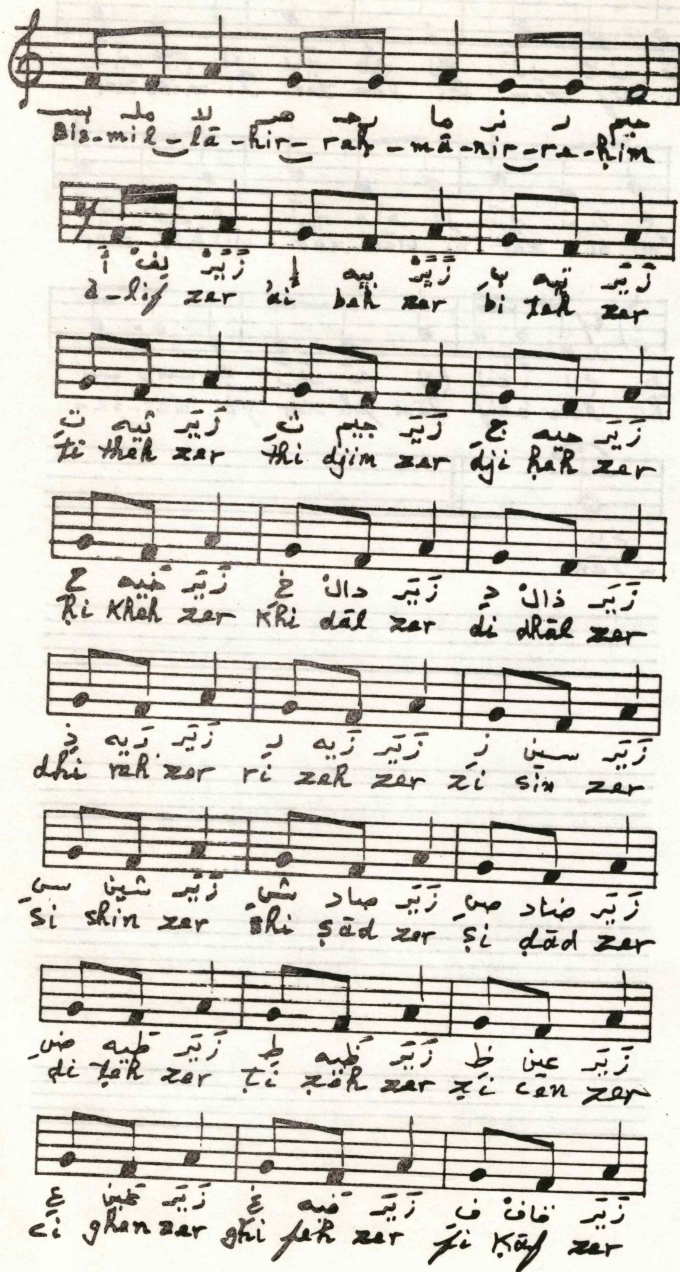 بسـ ملـ لا هر رحـ ما نر ر حيم
Bis-mil-lā-hir-raḥ-mā-nir-ra-ḥim
أَ لِفْ زَيَرْ إِ بيه زَيَرْ بِ تيه زَيَر
a-lif zer 'ai beh zer bi teh zer
تِ ثيه زَيَر ثِ جيم زَيَر جِ حيه زَيَر
ti theh zer thi djim zer dji ḥeh zer
حِ خيه زَيَر خِ دالْ زَيَر دِ ذالْ زَيَر
ḥi kheh zer khi dāl zer di dhāl zer
ذِ رَيه زَيَر رِ زَيه زَيَر زِ سين زَيَر
dhi reh zer ri zeh zer zi sin zer
سِ شين زَيَر شِ صاد زَيَر صِ ضاد زَيَر
si shin zer shi ṣād zer ṣi ḍād zer
ضِ طيه زَيَر طِ ظيه زَيَر ظِ عين زَيَر
ḍi ṭeh zer ṭi ẓeh zer ẓi cen zer
عِ غين زَيَر غِ فيه زَيَر فِ قافْ زَيَر
ci ghen zer ghi feh zer fi ḳāf zer